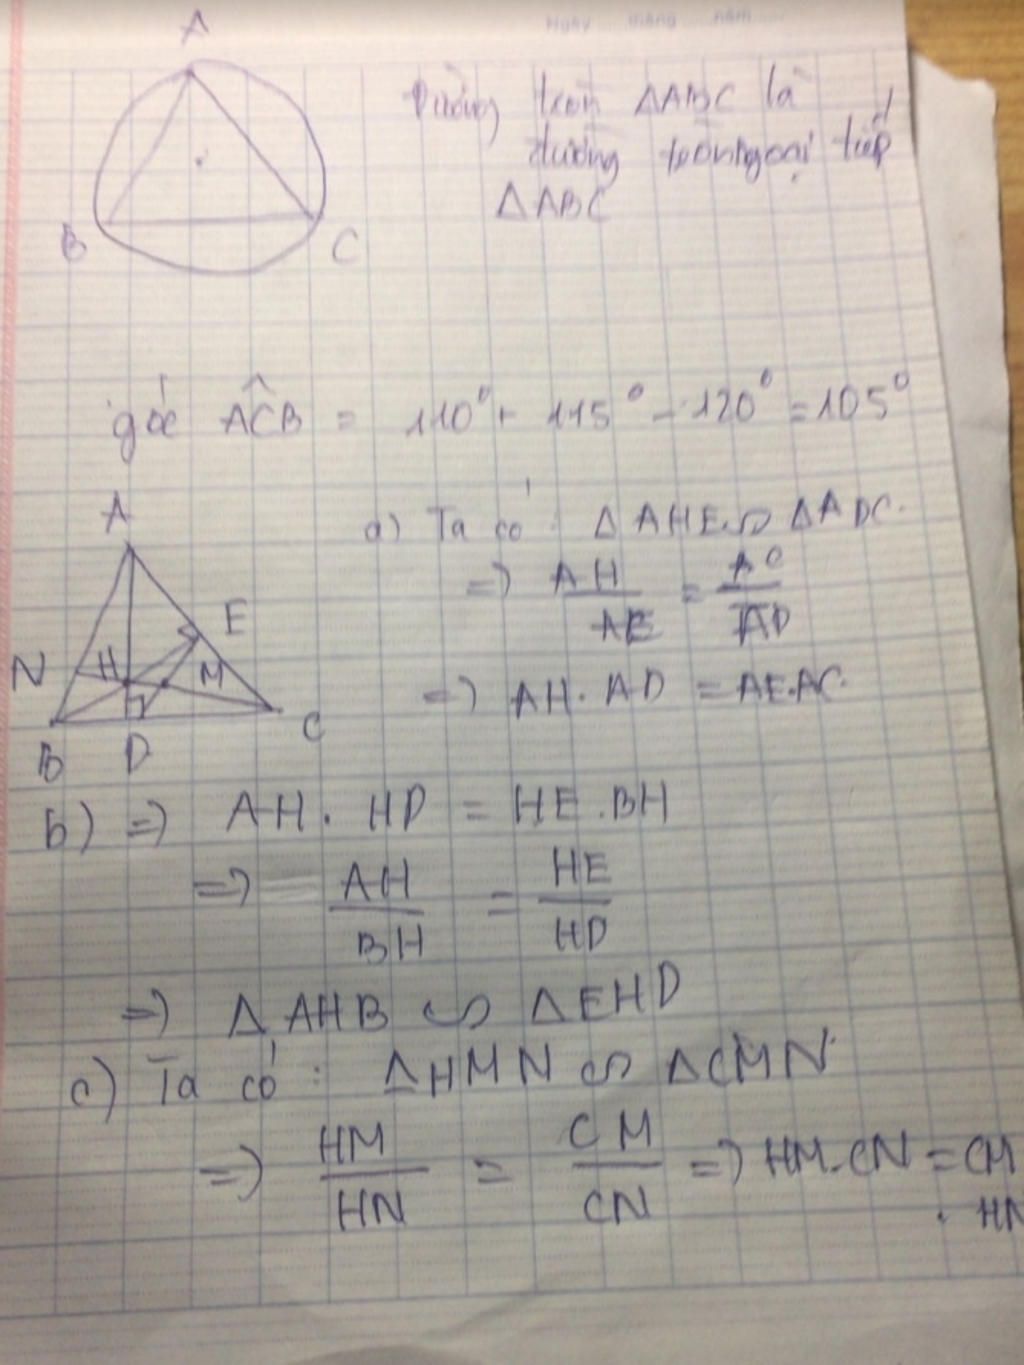 Ngày tháng năm
A
B
C
Đường tròn ΔABC là
đường tròn ngoại tiếp
ΔABC
góc ACB̂ = 110° + 115° - 120° = 105°
A
N
H
E
M
B
D
C
a) Ta có : ΔAHE ∽ ΔADC.
=> AH/AE = AC/AD
=> AH. AD = AE.AC.
b) => AH. HD = HE.BH
=> AH/BH = HE/HD
=> Δ AHB ∽ ΔEHD
c) Ta có : ΔHMN ∽ ΔCMN
=> HM/HN = CM/CN => HM.CN = CM
. HN